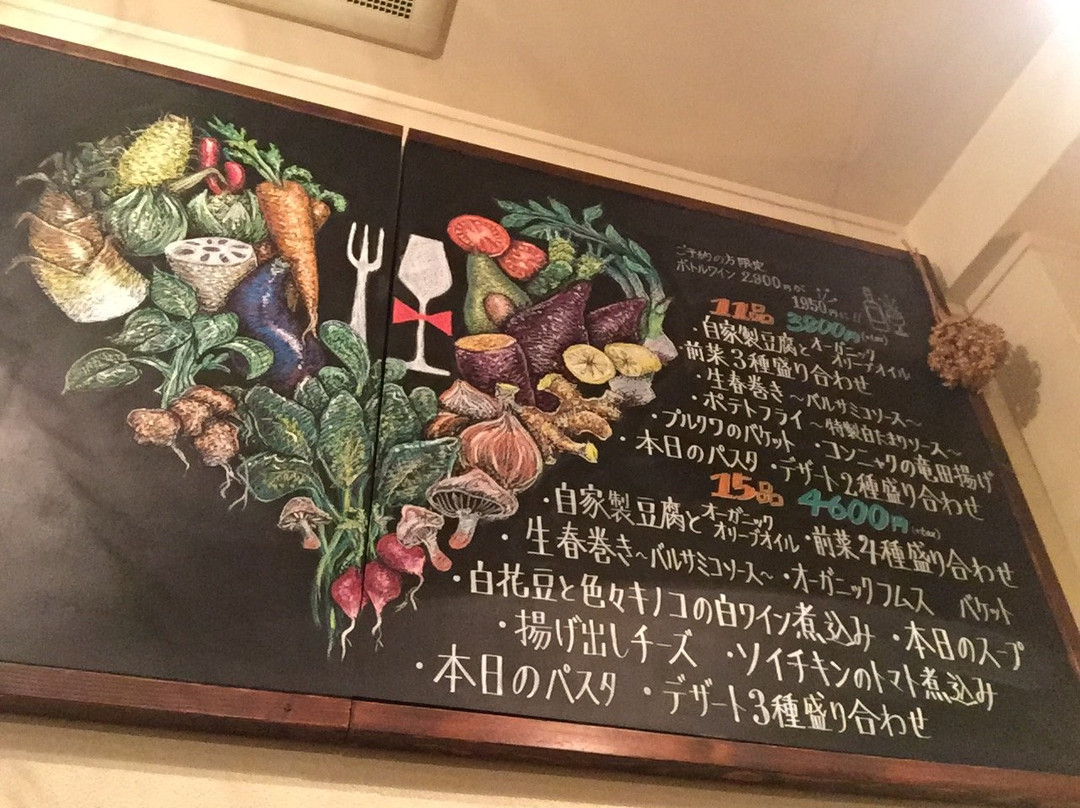 ご予約の方限定
ボトルワイン 2,900円が
1950円に!!
11品 3800円(+tax)
・自家製豆腐とオーガニックオリーブオイル
・前菜3種盛り合わせ
・生春巻き ～バルサミコソース～
・ポテトフライ ～特製白たまりソース～
・プルクワのバケット ・コンニャクの竜田揚げ
・本日のパスタ ・デザート2種盛り合わせ
15品 4600円(+tax)
・自家製豆腐とオーガニックオリーブオイル ・前菜4種盛り合わせ
・生春巻き～バルサミコソース～ ・オーガニックフムス バケット
・白花豆と色々キノコの白ワイン煮込み ・本日のスープ
・揚げ出しチーズ ・ソイチキンのトマト煮込み
・本日のパスタ ・デザート3種盛り合わせ